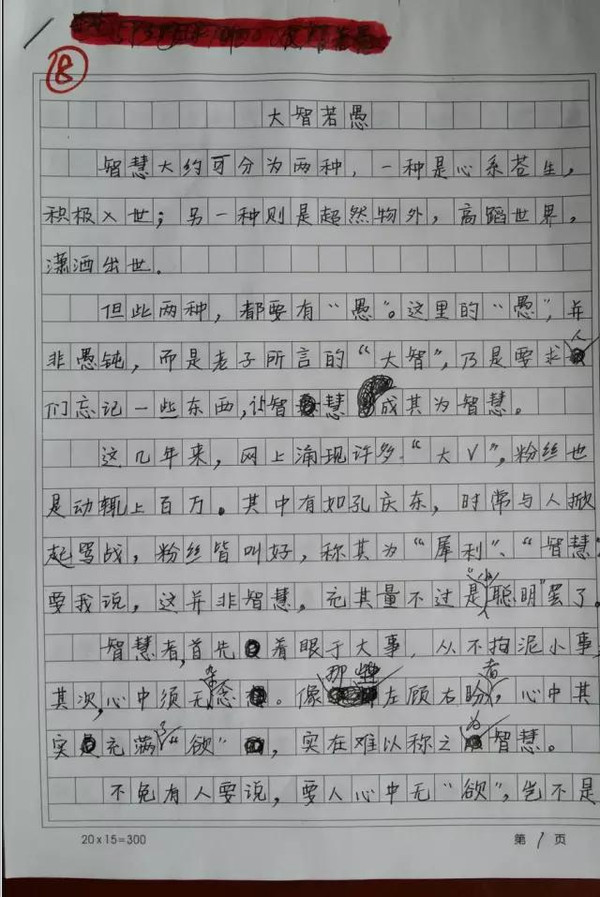 ⑧
大智若愚
智慧大约可分为两种，一种是心系苍生，
积极入世；另一种则是超然物外，高蹈世界，
潇洒出世。
但此两种，都要有“愚”。这里的“愚”，并
非愚钝，而是老子所言的“大智”，乃是要求人
们忘记一些东西，让智慧成其为智慧。
这几年来，网上涌现许多“大V”，粉丝也
是动辄上百万。其中有如孔庆东，时常与人掀
起骂战，粉丝皆叫好，称其为“犀利”、“智慧”
要我说，这并非智慧，充其量不过是“小聪明”罢了。
智慧者，首先着眼于大事，从不拘泥小事
其次，心中须无杂念。像那些左顾右盼者，心中其
实充满了“欲”，实在难以称之为智慧。
不免有人要说，要人心中无“欲”，岂不是
20×15=300
第1页